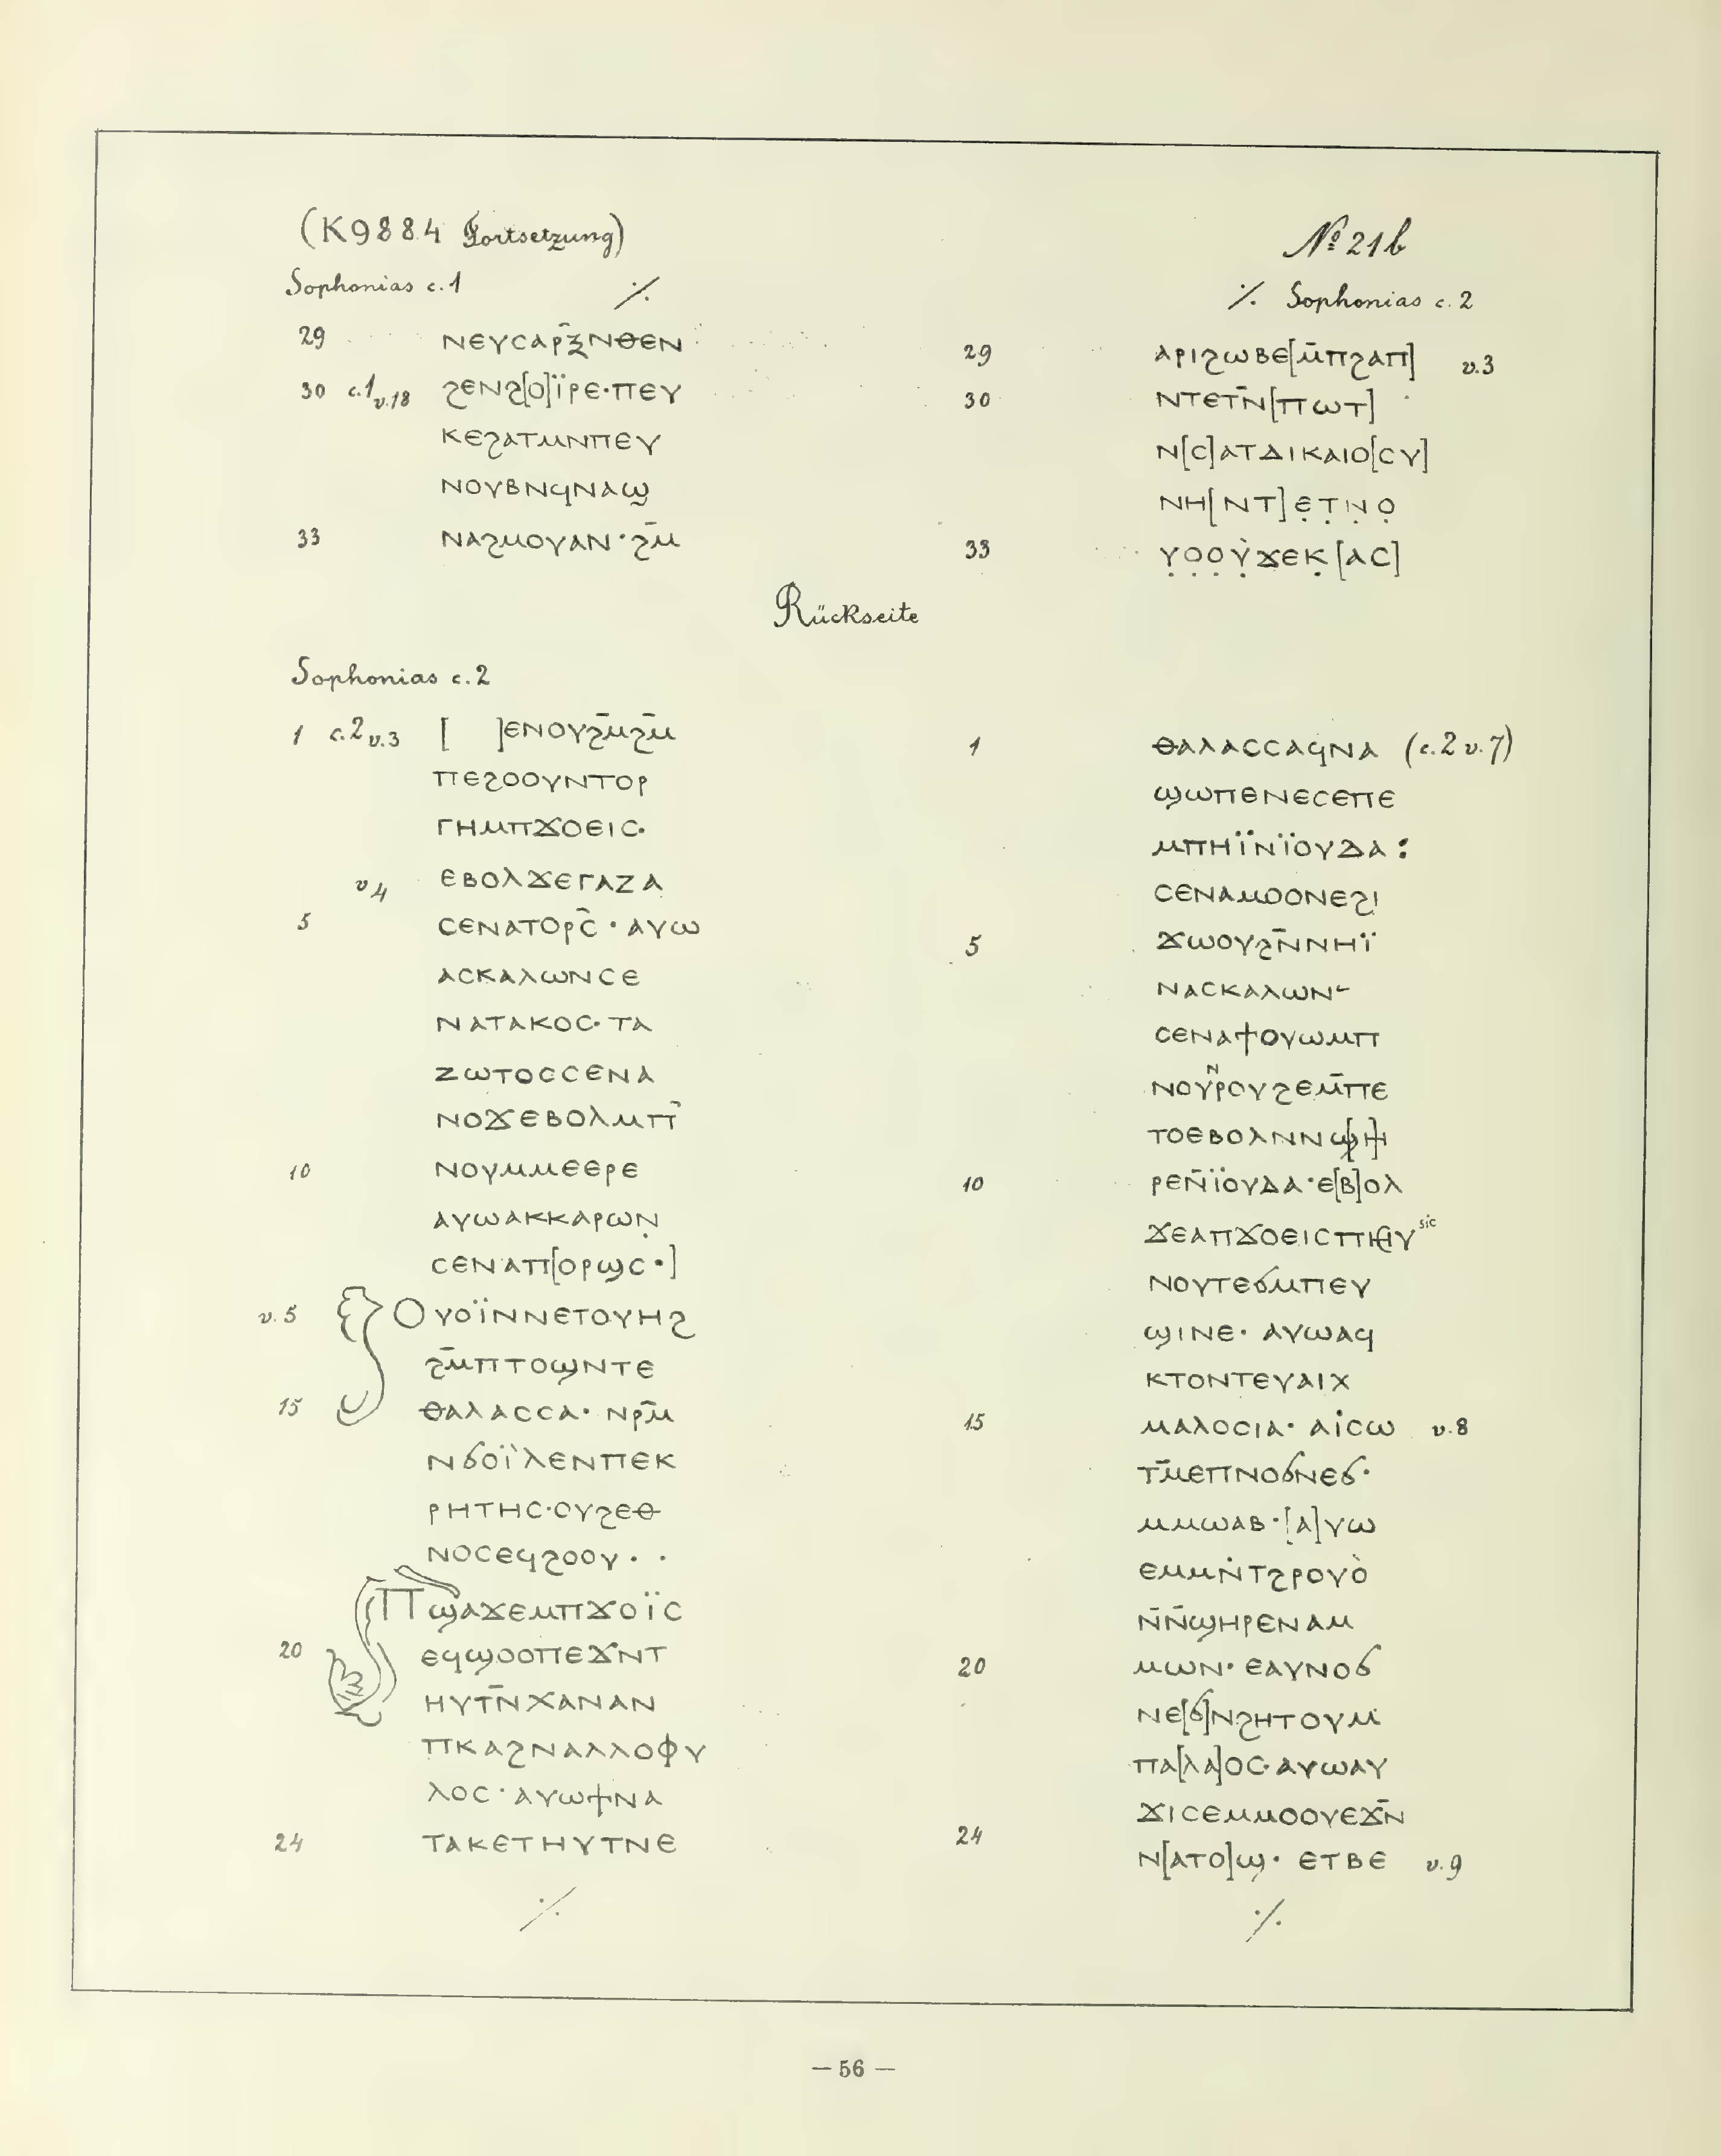 (K9884 Fortsetzung)
Sophonias c.1 ⁒
29 ⲛⲉⲩⲥⲁⲣ̄ⲝⲛⲑⲉⲛ
30 c.1 v.18 ϩⲉⲛϩ[ⲟ]ⲓ̈ⲣⲉ·ⲡⲉⲩ
ⲕⲉϩⲁⲧⲙⲛⲡⲉⲩ
ⲛⲟⲩⲃⲛϥⲛⲁϣ
33 ⲛⲁϩⲙⲟⲩⲁⲛ·ϩⲙ̄
№ 21b
⁒ Sophonias c.2
29 ⲁⲣⲓϩⲱⲃⲉ[ⲙ̄ⲡϩⲁⲡ] v.3
30 ⲛⲧⲉⲧⲛ̄[ⲡⲱⲧ]
ⲛ[ⲥ]ⲁⲧⲇⲓⲕⲁⲓⲟ[ⲥⲩ]
ⲛⲏ[ⲛⲧ]ⲉ̣ⲧ̣ⲛ̣ⲟ̣
33 ⲩ̣ⲟ̣ⲟ̣ⲩ̣̀ϫⲉⲕ̣[ⲁⲥ]
Rückseite
Sophonias c.2
1 c.2 v.3 [ ]ⲉⲛⲟⲩϩⲙ̄ϩⲙ̄
ⲡⲉϩⲟⲟⲩⲛⲧⲟⲣ
ⲅⲏⲙⲡϫⲟⲉⲓⲥ·
v.4 ⲉⲃⲟⲗϫⲉⲅⲁⲍⲁ
5 ⲥⲉⲛⲁⲧⲟⲣⲥ̄·ⲁⲩⲱ
ⲁⲥⲕⲁⲗⲱⲛⲥⲉ
ⲛⲁⲧⲁⲕⲟⲥ·ⲧⲁ
ⲍⲱⲧⲟⲥⲥⲉⲛⲁ
ⲛⲟϫⲉⲃⲟⲗⲙⲡ̄
10 ⲛⲟⲩⲙⲙⲉⲉⲣⲉ
ⲁⲩⲱⲁⲕⲕⲁⲣⲱⲛ̣
ⲥⲉⲛⲁⲡ[ⲟⲣϣⲥ·]
v.5 Ⲟⲩⲟⲓ̈ⲛⲛⲉⲧⲟⲩⲏϩ
ϩⲙ̄ⲡⲧⲟϣⲛⲧⲉ
15 ⲑⲁⲗⲁⲥⲥⲁ·ⲛⲣⲙ̄
ⲛϭⲟⲓ̈̀ⲗⲉⲛⲡⲉⲕ
ⲣⲏⲧⲏⲥ·ⲟⲩϩⲉⲑ
ⲛⲟⲥⲉϥϩⲟⲟⲩ· ·
Ⲡϣⲁϫⲉⲙⲡϫⲟⲓ̈ⲥ
20 ⲉϥϣⲟⲟⲡⲉϫⲛⲧ
ⲏⲩⲧⲛ̄ⲭⲁⲛⲁⲛ
ⲡⲕⲁϩⲛⲁⲗⲗⲟⲫⲩ
ⲗⲟⲥ·ⲁⲩⲱϯⲛⲁ
24 ⲧⲁⲕⲉⲧⲏⲩⲧⲛⲉ
⁒
1 ⲑⲁⲗⲁⲥⲥⲁϥⲛⲁ (c.2 v.7)
ϣⲱⲡⲉⲛⲉⲥⲉⲡⲉ
ⲙⲡⲏⲓ̈ⲛⲓ̈ⲟⲩⲇⲁ:
ⲥⲉⲛⲁⲙⲟⲟⲛⲉϩⲓ
5 ϫⲱⲟⲩϩⲛ̄ⲛⲏⲓ̈
ⲛⲁⲥⲕⲁⲗⲱⲛ
ⲥⲉⲛⲁϯⲟⲩⲱⲙⲡ
ⲛⲟⲩⲛⲣⲟⲩϩⲉⲙ̄ⲡⲉ
ⲧⲟⲉⲃⲟⲗⲛⲛϣⲏ
10 ⲣⲉⲛ̄ⲓ̈ⲟⲩⲇⲁ·ⲉ[ⲃ]ⲟⲗ
ϫⲉⲁⲡϫⲟⲉⲓⲥⲡⲏⲉⲩ sic
ⲛⲟⲩⲧⲉϭⲙⲡⲉⲩ
ϣⲓⲛⲉ· ⲁⲩⲱⲁϥ
ⲕⲧⲟⲛⲧⲉⲩⲁⲓⲭ
15 ⲙⲁⲗⲟⲥⲓⲁ· ⲁⲓⲥⲱ v.8
ⲧⲙ̄ⲉⲡⲛⲟϭⲛⲉϭ·
ⲙⲙⲱⲁⲃ·[ⲁ]ⲩⲱ
ⲉⲙⲙⲛ̇ⲧϩⲣⲟⲩⲟ̀
ⲛ̄ⲛ̄ϣⲏⲣⲉⲛⲁⲙ
20 ⲙⲱⲛ· ⲉⲁⲩⲛⲟϭ
ⲛⲉ[ϭ]ⲛϩⲏⲧⲟⲩⲙ
ⲡⲁ[ⲗⲁ]ⲟⲥ·ⲁⲩⲱⲁⲩ
ϫⲓⲥⲉⲙⲙⲟⲟⲩⲉϫⲛ̄
24 ⲛ[ⲁⲧⲟ]ϣ· ⲉⲧⲃⲉ v.9
⁒
— 56 —